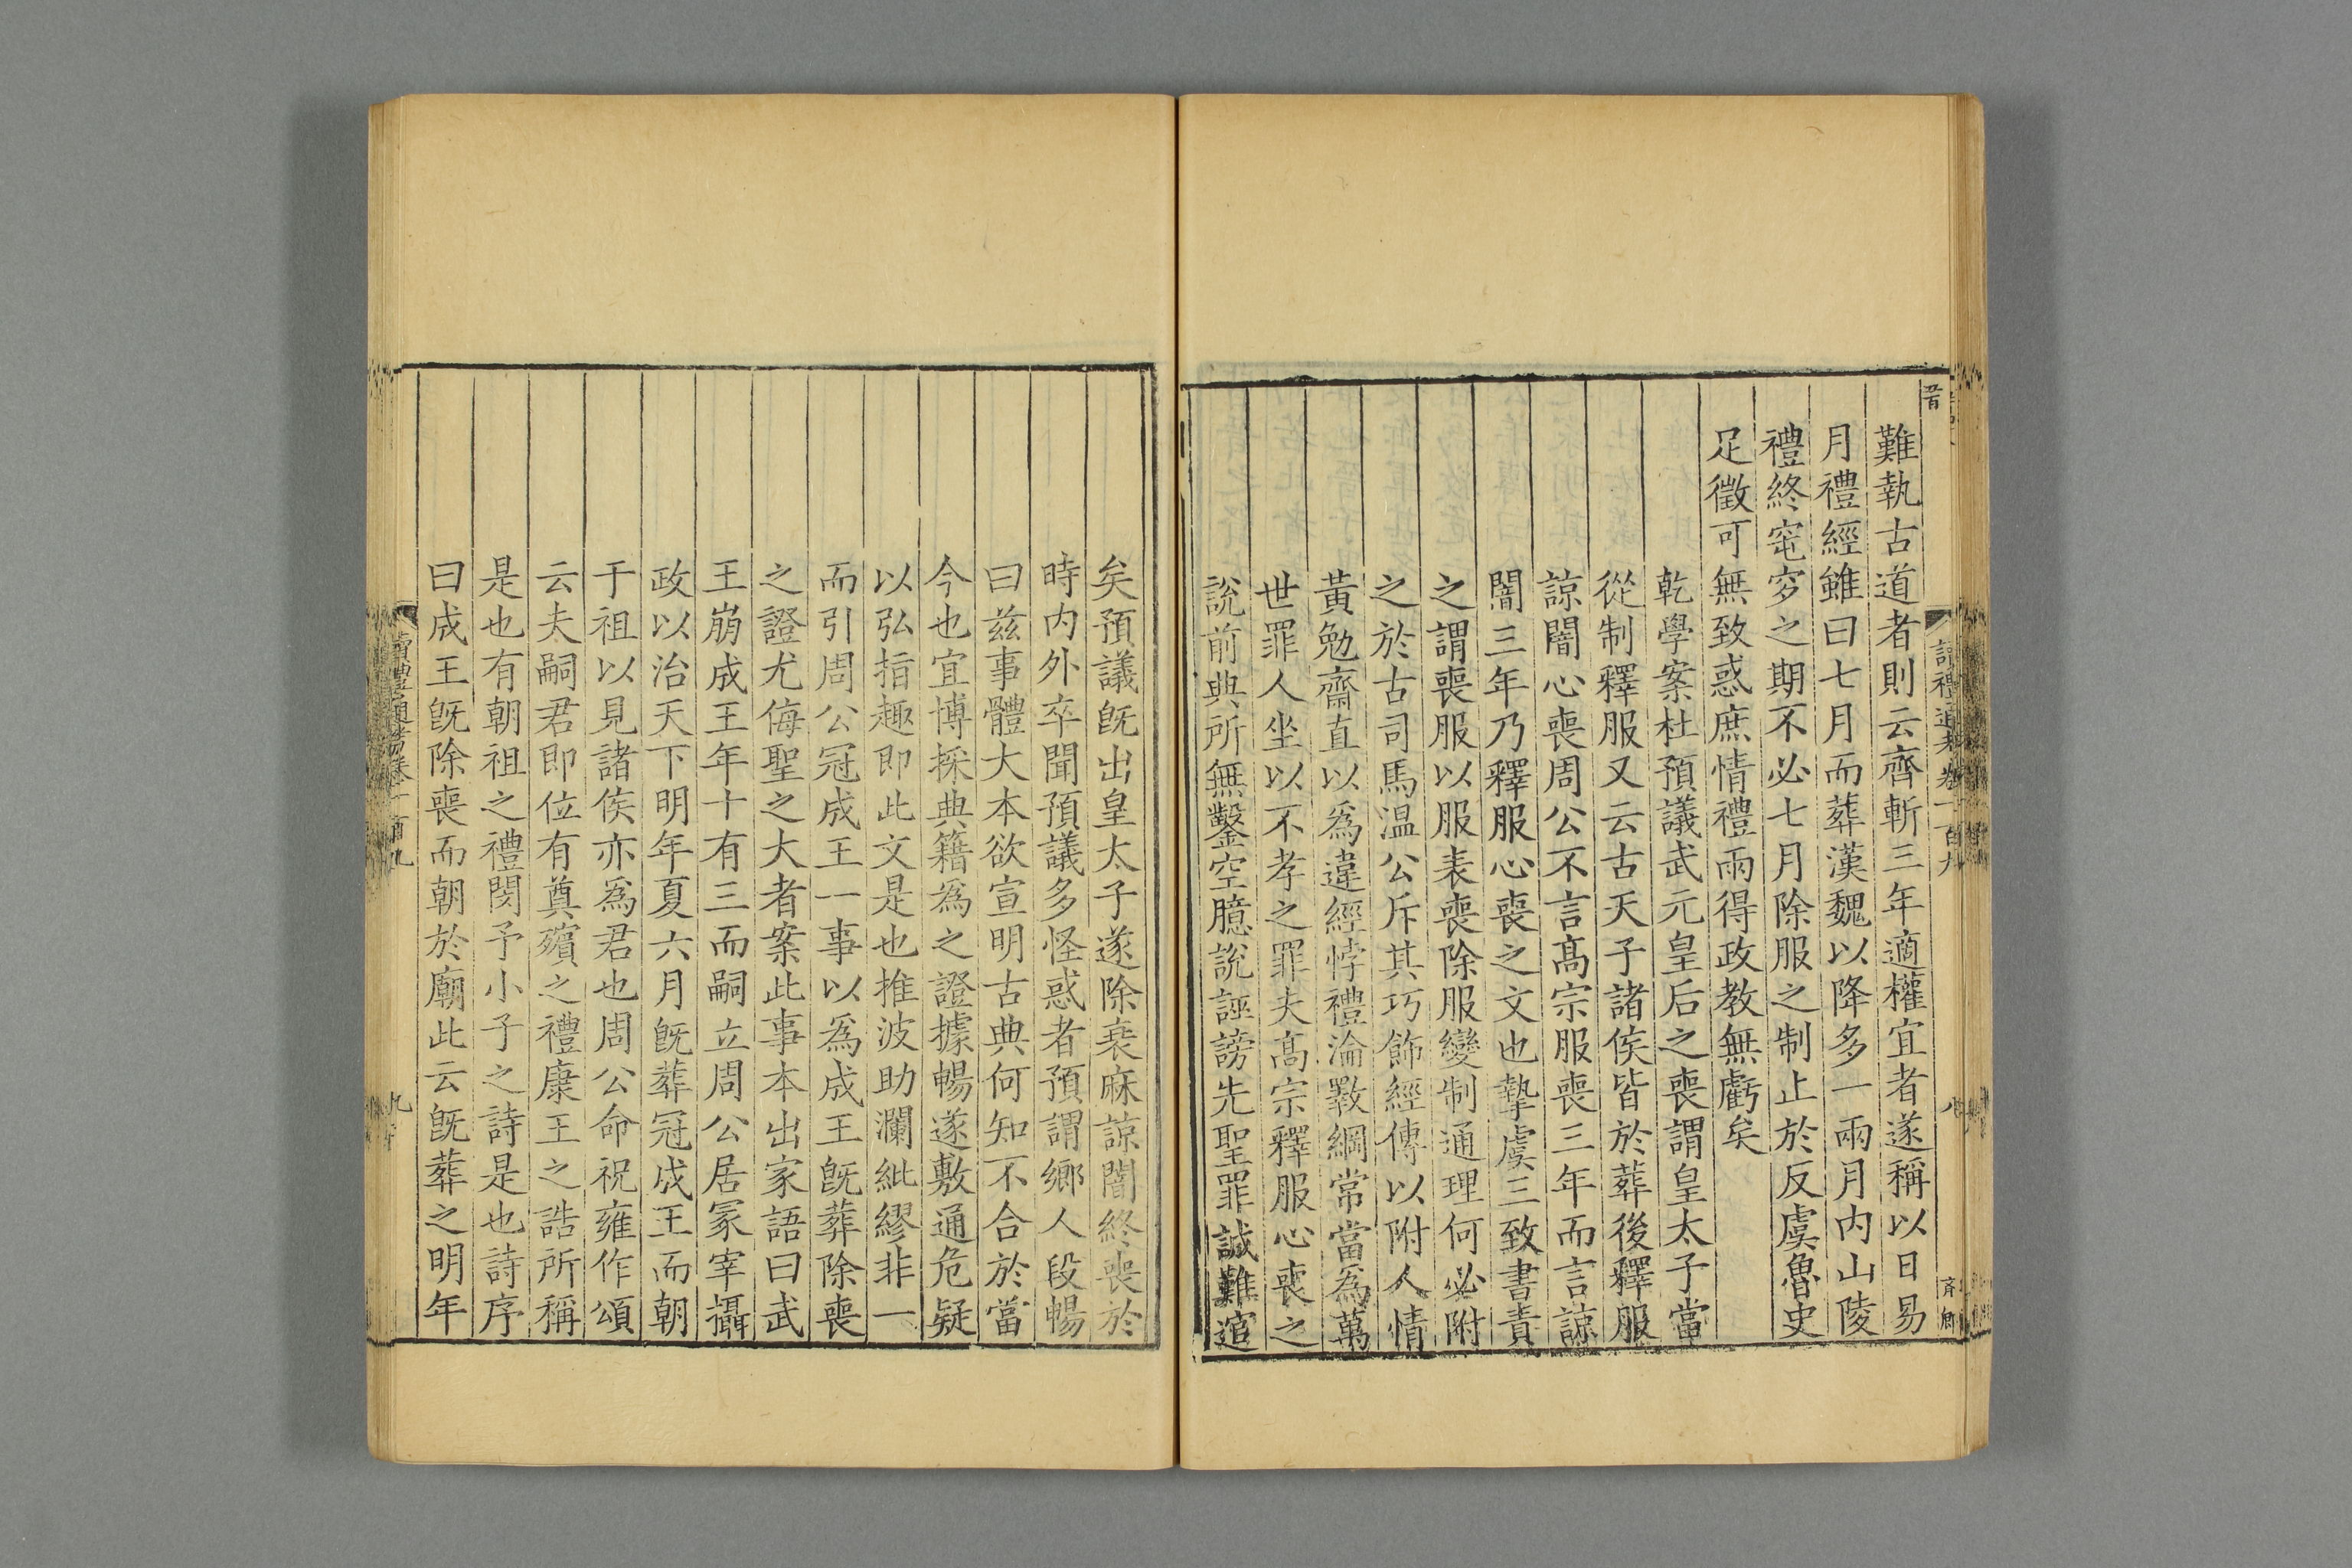 難執古道者則云齊斬三年適權宜者遂稱以日易
月禮經雖曰七月而葬漢魏以降多一兩月內山陵
禮終窀穸之期不必七月除服之制止於反虞魯史
足徵可無致惑庶情禮兩得政教無虧矣
乾學案杜預議武元皇后之喪謂皇太子當
從制釋服又云古天子諸侯皆於葬後釋服
諒闇心喪周公不言高宗服喪三年而言諒
闇三年乃釋服心喪之文也摯虞三致書責
之謂喪服以服表喪除服變制通理何必附
之於古司馬溫公斥其巧飾經傳以附人情
黃勉齋直以為違經悖禮淪斁綱常當為萬
世罪人坐以不孝之罪夫高宗釋服心喪之
說前典所無鑿空臆說誣謗先聖罪誠難逭
讀禮通考卷一百九
八
矣預議旣出皇太子遂除衰麻諒闇終喪於
時內外卒聞預議多怪惑者預謂鄉人段暢
曰茲事體大本欲宣明古典何知不合於當
今也宜博採典籍為之證據暢遂敷通危疑
以弘指趣即此文是也推波助瀾紕繆非一
而引周公冠成王一事以為成王旣葬除喪
之證尤侮聖之大者案此事本出家語曰武
王崩成王年十有三而嗣立周公居冢宰攝
政以治天下明年夏六月旣葬冠成王而朝
于祖以見諸侯亦為君也周公命祝雍作頌
云夫嗣君即位有奠殯之禮康王之誥所稱
是也有朝祖之禮閔予小子之詩是也詩序
曰成王旣除喪而朝於廟此云旣葬之明年
讀禮通考卷一百九
九